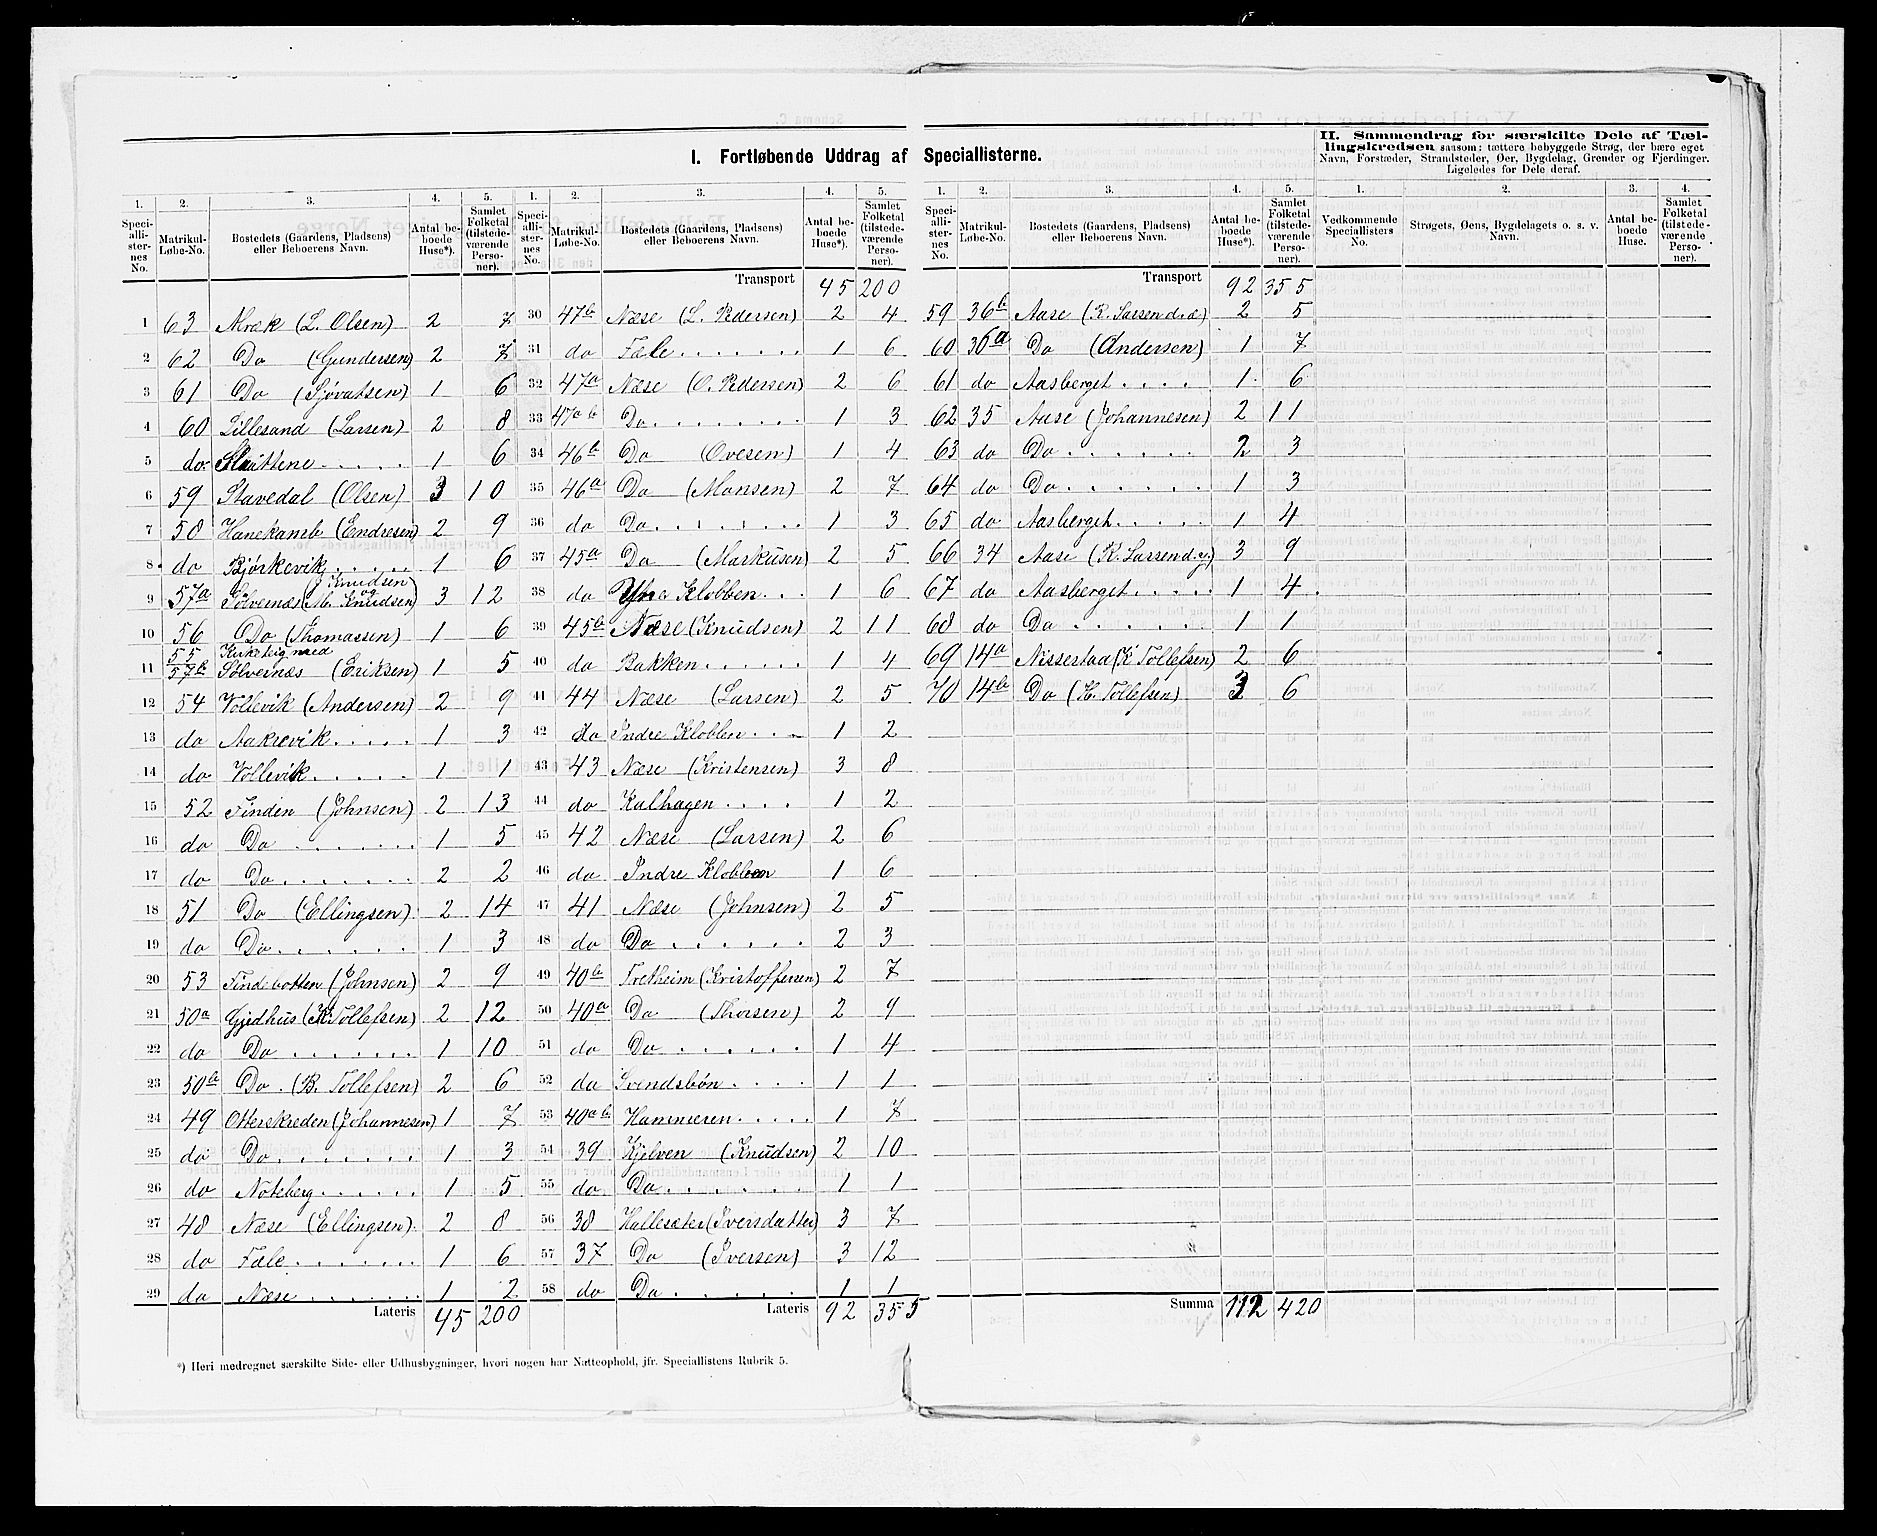 I. Fortløbende Uddrag af Speciallisterne.
II. Sammendrag for særskilte Dele af Tæl-
lingskredsen saasom: tættere bebyggede Strøg, der bære eget
Navn, Forstæder, Strandsteder, Øer, Bygdelag, Grender og Fjerdinger.
Ligeledes for Dele deraf.
1. 2. 3. 4. 5. 1. 2. 3. 4. 5. 1. 2. 3. 4. 5. 1. 2. 3. 4.
Speciallisternes No. Matrikul-Løbe-No. Bostedets (Gaardens, Pladsens) eller Beboerens Navn. Antal beboede Huse*). Samlet Folketal (tilstedeværende Personer).
Speciallisternes No. Matrikul-Løbe-No. Bostedets (Gaardens, Pladsens) eller Beboerens Navn. Antal beboede Huse*). Samlet Folketal (tilstedeværende Personer).
Speciallisternes No. Matrikul-Løbe-No. Bostedets (Gaardens, Pladsens) eller Beboerens Navn. Antal beboede Huse*). Samlet Folketal (tilstedeværende Personer).
Vedkommende Speciallisters No. Strøgets, Øens, Bygdelagets o. s. v. Navn. Antal beboede Huse. Samlet Folketal (tilstedeværende Personer).
1 63 Mræk (L. Olsen) 2 7
2 62 Do (Gundersen) 2 7
3 61 Do (Sjøvatsen) 1 6
4 60 Lillesand (Larsen) 2 8
5 do Slaittene 1 6
6 59 Stavedal (Olsen) 3 10
7 58 Hanekamb (Endresen) 2 9
8 do Bjørkevik 1 6
Knudsen
9 57a Sølvernæs (M. og Knudsen) 3 12
10 56 Do (Thomassen) 1 6
55 Kirketeig med
11 57b Sølvernæs (Eriksen) 1 5
12 54 Vollevik (Andersen) 2 9
13 do Aakrevik 1 3
14 do Vollevik 1 1
15 52 Finden (Johnsen) 2 13
16 do Do 1 5
17 do Do 2 2
18 51 Do (Ellingsen) 2 14
19 do Do 1 3
20 53 Findebotten (Johnsen) 2 9
21 50a Gjedhus (K Tollefsen) 2 12
22 do Do 1 10
23 50b Do (B. Tollefsen) 2 6
24 49 Otterskreden (Johannesen) 1 7
25 do Do 1 3
26 do Noteberg 1 5
27 48 Næse (Ellingsen) 2 8
28 do Fæle 1 6
29 do Næse 1 2
Lateris 45 200
Transport 45 200
30 47b Næse (L. Pedersen) 2 4
31 do Fæle 1 6
32 47a Næse (O. Pedersen) 2 6
33 47a b Do 1 3
34 46b Do (Ovesen) 1 4
35 46a Do (Monsen) 2 7
36 do Do 1 3
37 45a Do (Markusen) 2 5
38 do Ytre Klobben 1 6
39 45b Næse (Knudsen) 2 11
40 do Bakken 1 4
41 44 Næse (Larsen) 2 5
42 do Indre Klobben 1 2
43 43 Næse (Kristensen) 3 8
44 do Kalhagen 1 2
45 42 Næse (Larsen) 2 6
46 do Indre Klobben 1 6
47 41 Næse (Johnsen) 2 5
48 do Do 2 3
49 40b Tretheim (Kristoffersen) 2 7
50 40a Do (Thorsen) 2 9
51 do Do 1 4
52 do Svendsbøn 1 1
53 40a b Hammeren 1 7
54 39 Kjelven (Knudsen) 2 10
55 do Do 1 1
56 38 Hallesæter (Iversdatter) 3 7
57 37 Do (Iversen) 3 12
58 do Do 1 1
Lateris 92 355
Transport 92 355
59 36b Aase (K. Larsen d. æ) 2 5
60 36a Do (Andersen) 1 7
61 do Aasberget 1 6
62 35 Aase (Johannesen) 2 11
63 do Do 2 3
64 do Do 1 3
65 do Aasberget 1 4
66 34 Aase (K. Larsen d. y.) 3 9
67 do Aasberget 1 4
68 do Do 1 1
69 14a Nissestad (K Tollefsen) 2 6
70 14b Do (H. Tollefsen) 3 6
Summa 112 420
*) Heri medregnet særskilte Side- eller Udhusbygninger, hvori nogen har Natteophold, jfr. Speciallistens Rubrik 5.